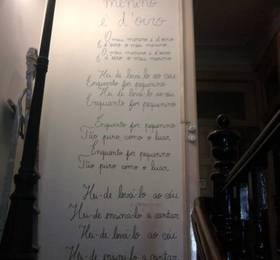 menino
é d'oiro
O meu menino é d'oiro
É d'oiro o meu menino
O meu menino é d'oiro
É d'oiro o meu menino
Hei-de levá-lo ao céu
Enquanto for pequenino
Hei-de levá-lo ao céu
Enquanto for pequenino
Enquanto for pequenino
Tão puro como o luar
Enquanto for pequenino
Tão puro como o luar
Hei-de levá-lo ao céu
Hei-de ensiná-lo a cantar
Hei-de levá-lo ao céu
Hei-de ensiná-lo a cantar